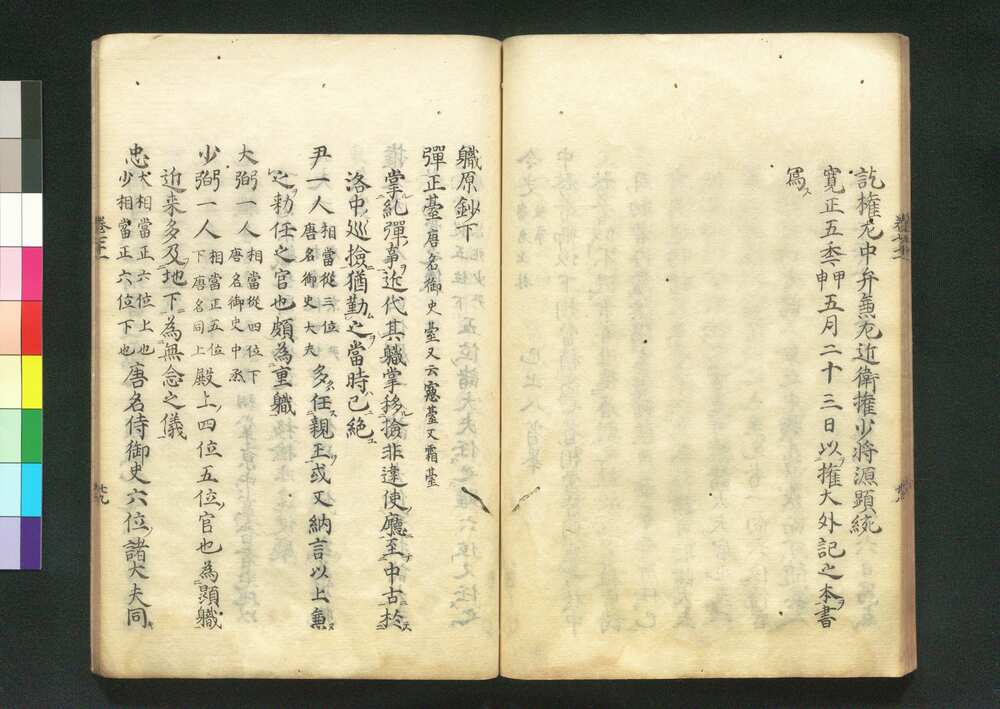 訖権右中弁兼左近衛権少将源顕統
寛正五季甲申五月二十三日以権大外記之本書
写
職原鈔下
彈正臺唐名御史臺又云憲臺又霜臺
掌糺彈事近代其職掌移撿非違使廳至中古於
洛中巡撿猶勤之當時已絶
尹一人相當從三位唐名御史大夫多任親王或又納言以上兼
之勅任之官也頗為重職
大弼一人相當從四位下唐名御史中丞
少弼一人相當正五位下唐名同上殿上四位五位官也為顕職
近来多及地下為無念之儀
忠大相當正六位上也少相當正六位下也唐名侍御史六位諸大夫同